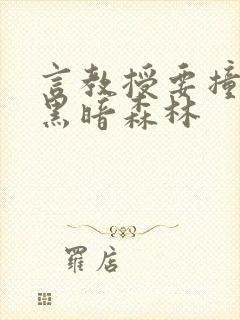 言教授要撞
黑暗森林
羅店